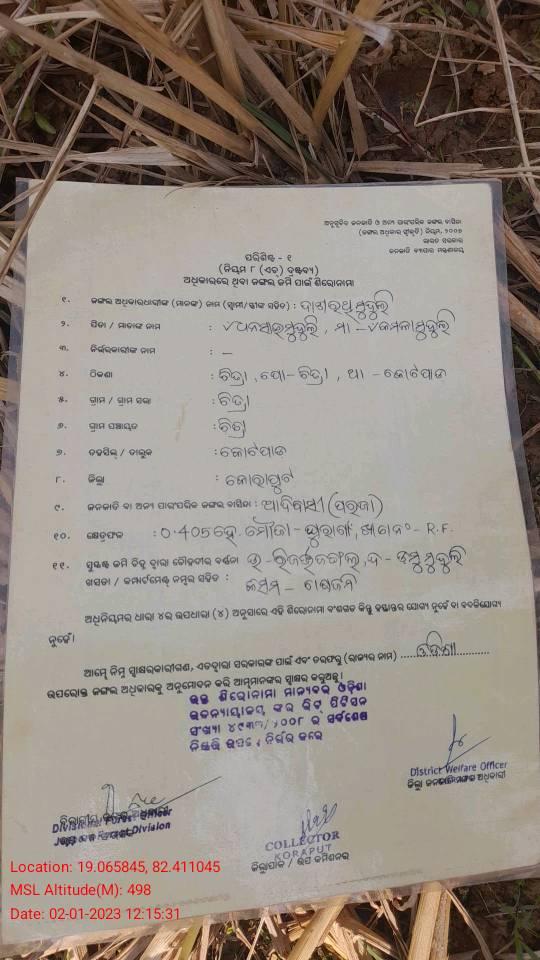 ଅନୁସୂଚିତ ଜନଜାତି ଓ ଅନ୍ୟ ପାରମ୍ପରିକ ଜଙ୍ଗଲ ବାସିନ୍ଦା
(ଜଙ୍ଗଲ ଅଧିକାର ସ୍ୱୀକୃତି) ନିୟମ, ୨୦୦୭
ଭାରତ ସରକାର
ଜନଜାତି ବ୍ୟାପାର ମନ୍ତ୍ରଣାଳୟ
ପରିଶିଷ୍ଟ - ୧
(ନିୟମ ୮ (ଏଚ୍) ଦ୍ରଷ୍ଟବ୍ୟ)
ଅଧିକାରରେ ଥିବା ଜଙ୍ଗଲ ଜମି ପାଇଁ ଶିରୋନାମା
୧. ଜଙ୍ଗଲ ଅଧିକାରଧାରୀଙ୍କ (ମାନଙ୍କ) ନାମ (ସ୍ୱାମୀ/ସ୍ତ୍ରୀଙ୍କ ସହିତ) : ଦାଶରଥି ମୁଦୁଲି
୨. ପିତା / ମାତାଙ୍କ ନାମ : ଧନସାଇ ମୁଦୁଲି , ମା - କମଳା ମୁଦୁଲି
୩. ନିର୍ଭରକାରୀଙ୍କ ନାମ : -
୪. ଠିକଣା : ଚିତ୍ରା , ପୋ- ଚିତ୍ରା , ଥା - କୋଟପାଡ
୫. ଗ୍ରାମ / ଗ୍ରାମ ସଭା : ଚିତ୍ରା
୬. ଗ୍ରାମ ପଞ୍ଚାୟତ : ଚିତ୍ରା
୭. ତହସିଲ୍ / ତାଲୁକ : କୋଟପାଡ
୮. ଜିଲ୍ଲା : କୋରାପୁଟ
୯. ଜନଜାତି ବା ଅନ୍ୟ ପାରମ୍ପରିକ ଜଙ୍ଗଲ ବାସିନ୍ଦା : ଆଦିବାସୀ (ପରଜା)
୧୦. କ୍ଷେତ୍ରଫଳ : 0.405 ହେ. ମୌଜା - - R.F.
୧୧. ସୁସ୍ପଷ୍ଟ ଜମି ଚିହ୍ନ ଦ୍ୱାରା ଚୌହଦୀର ବର୍ଣ୍ଣନା ଉ - ରିଜର୍ଭ ଜଙ୍ଗଲ, ଦ - ମୁଦୁଲି
ଖସଡା / କମ୍ପାର୍ଟମେଣ୍ଟ ନମ୍ବର ସହିତ :
ଅଧିନିୟମର ଧାରା ୪ର ଉପଧାରା (୪) ଅନୁସାରେ ଏହି ଶିରୋନାମା ବଂଶଗତ କିନ୍ତୁ ହସ୍ତାନ୍ତର ଯୋଗ୍ୟ ନୁହେଁ ବା ବଦଳିଯୋଗ୍ୟ
ନୁହେଁ।
ଆମ୍ଭେ ନିମ୍ନ ସ୍ୱାକ୍ଷରକାରୀଗଣ, ଏତଦ୍ୱାରା ସରକାରଙ୍କ ପାଇଁ ଏବଂ ତରଫରୁ (ରାଜ୍ୟର ନାମ) ଓଡିଶା
ଉପରୋକ୍ତ ଜଙ୍ଗଲ ଅଧିକାରକୁ ଅନୁମୋଦନ କରି ଆମ୍ଭମାନଙ୍କର ସ୍ୱାକ୍ଷର କରୁଅଛୁ।
ଉକ୍ତ ଶିରୋନାମା ମାନ୍ୟବର ଓଡ଼ିଶା
ଉଚ୍ଚନ୍ୟାୟାଳୟ ଙ୍କର ରିଟ୍ ପିଟିସନ
ସଂଖ୍ୟା ର ସର୍ବଶେଷ
ନିଷ୍ପତ୍ତି ଉପରେ ନିର୍ଭର କରେ
District Welfare Officer
ଜିଲ୍ଲା ଜନଜାତି ମଙ୍ଗଳ ଅଧିକାରୀ
Divisional Forest Officer
Division
COLLECTOR
KORAPUT
ଜିଲ୍ଲାପାଳ / ଉପ କମିଶନର
Location: 19.065845, 82.411045
MSL Altitude(M): 498
Date: 02-01-2023 12:15:31